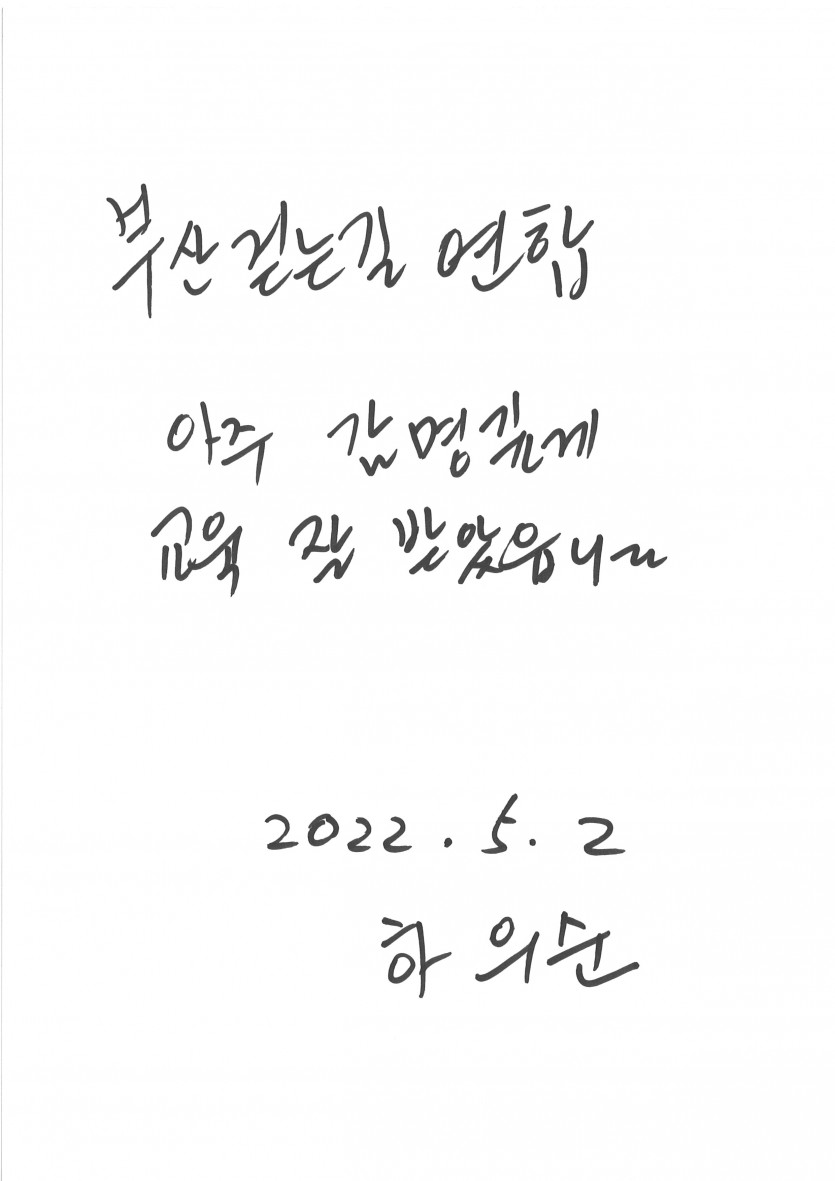 부산 걷는길 연합
아주 감명깊게
교육 잘 받았읍니다
2022. 5. 2
하 의순